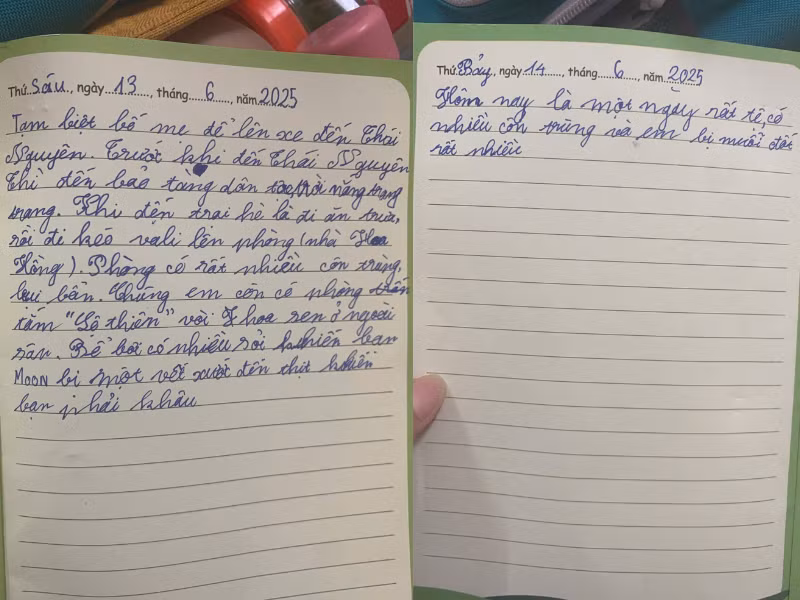 Thứ Sáu, ngày 13, tháng 6, năm 2025
Tạm biệt bố mẹ để lên xe đến Thái
Nguyên. Trước khi đến Thái Nguyên
thì đến bảo tàng dân tộc, trời nắng trang
trang. Khi đến trại hè là đi ăn trưa,
rồi đi kéo vali lên phòng (nhà Hoa
Hồng). Phòng có rất nhiều côn trùng,
bụi bẩn. Chúng em còn có phòng
tắm "Lộ thiên" với hoa sen ở ngoài
sân. Bể bơi có nhiều rủi khiến bạn
MOON bị một vết xước đến thịt khiến
bạn phải khâu
Thứ Bảy, ngày 14, tháng 6, năm 2025
Hôm nay là một ngày rất tệ, có
nhiều côn trùng và em bị muỗi đốt
rất nhiều